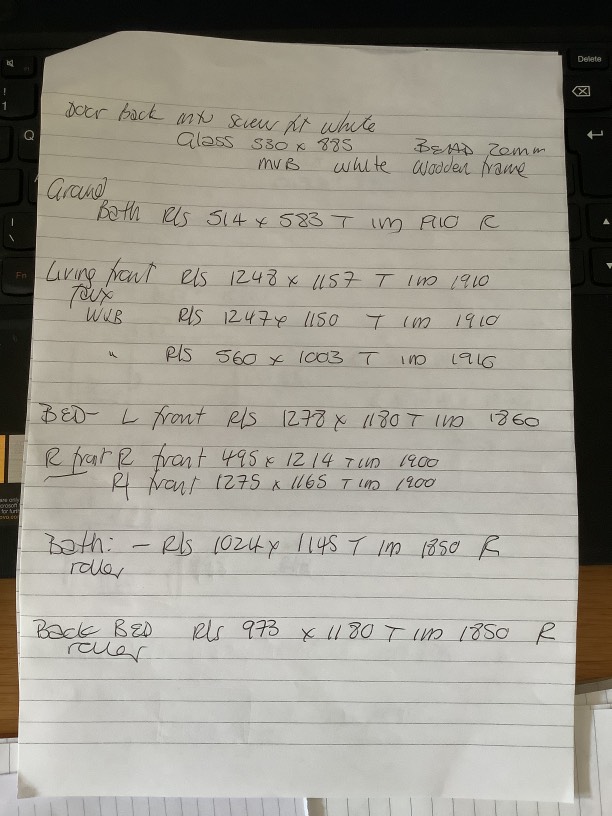 Door Back into screw fit white
Glass 530 x 885 BEAD 20mm
MVB white wooden frame
Ground
Bath Rls 514 x 583 T 1m 1910 R
Living front Rls 1248 x 1157 T 1m 1910
WVB Rls 1247 x 1150 T 1m 1910
" Rls 560 x 1003 T 1m 1910
BED - L front Rls 1278 x 1180 T 1m 1860
R front R front 495 x 1214 T 1m 1900
front 1275 x 1165 T 1m 1900
Bath: - Rls 1024 x 1145 T 1m 1850 R
roller
Back BED Rls 973 x 1180 T 1m 1850 R
roller
Delete
Q
Fn